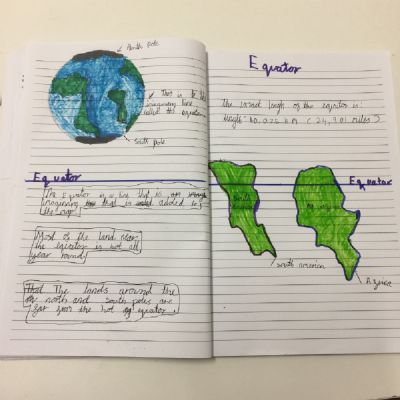 North Pole
This is the
imaginary line
called the equator
South Pole
Equator
The Equator is a line that is an
imaginary that is added to
the map.
Most of the land near
the equator is hot all
year round
The lands around the
north and south poles are
far from the hot equator
Equator
The exact length of the equator is:
40,075 km (24,901 miles)
Equator
South America
Africa